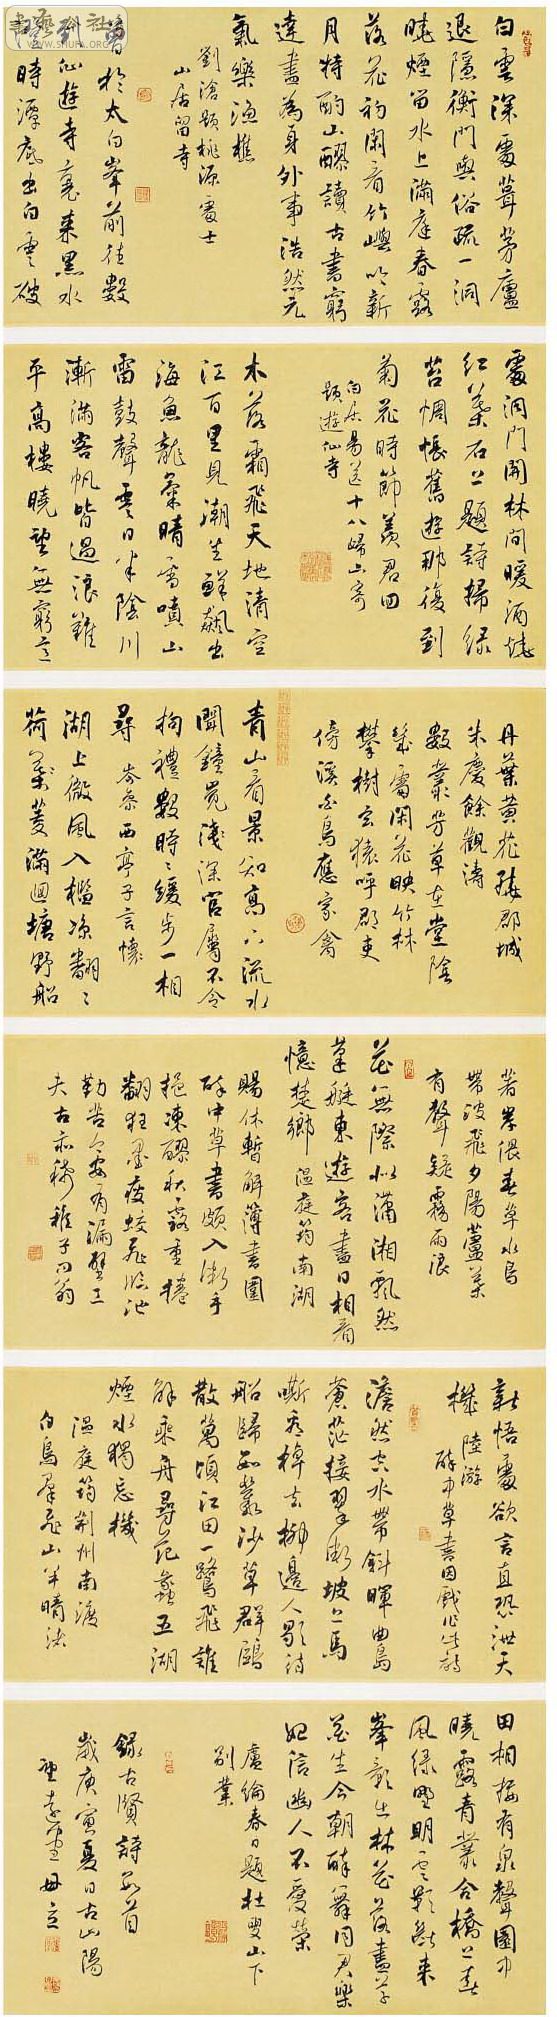 WWW.SHUFA.ORG
白雲深處葺茅廬
退隱衡門與俗疏一洞
曉煙留水上滿庭春露
落花初閑看竹嶼吟新
月特酌山醪讀古書窮
達盡為身外事浩然元
氣樂漁樵
劉滄題桃源處士
山居留寺
曾於太白峯前住數
仙遊寺裏來黑水
時潭底出白雲破
處洞門開林間暖酒燒
紅葉石上題詩掃綠
苔惆悵舊遊那復到
菊花時節羨君回
白居易送十八歸山寄
題遊仙寺
木落霜飛天地清空
江百里見潮生鮮飆出
海魚龍氣晴雪噴山
雷鼓聲雲日半陰川
漸滿客帆皆過浪難
平高樓曉望無窮意
丹葉黃花繞郡城
朱慶餘觀濤
數叢芳草在堂陰
幾處閑花映竹林
攀樹玄猿呼郡吏
傍溪白鳥應家禽
青山看景知高下流水
聞鐘覺淺深官屬不令
拘禮數時時緩步一相
尋 岑參西亭子言懷
湖上微風入檻涼翻翻
荷葉菱滿迴塘野船
著岸偎春草水鳥
帶波飛夕陽蘆葉
有聲疑霧雨浪
花無際似瀟湘飄然
篷艇東遊客盡日相看
憶楚鄉 溫庭筠南湖
賜休暫解簿書圍
醉中草書頗入微手
挹凍醪秋露重捲
翻狂墨瘦蛟飛臨池
勤苦今安有漏壁工
夫古亦稀稚子問翁
新悟處欲言直恐泄天
機 陸游
醉中草書因戲作此詩
澹然空水帶斜暉曲島
蒼茫接翠微坡上馬
嘶看棹去柳邊人歇待
船歸數叢沙草群鷗
散萬頃江田一鷺飛誰
解乘舟尋范蠡五湖
煙水獨忘機
溫庭筠荊州南渡
白鳥群飛山半晴渚
田相接有泉聲園中
曉露青叢合橋上春
風綠野明雲影斷來
峯影出林花落盡草
花生今朝醉舞同君樂
始信幽人不愛榮
盧綸春日題杜叟山下
別業
錄古賢詩數首
歲庚寅夏日古山陽